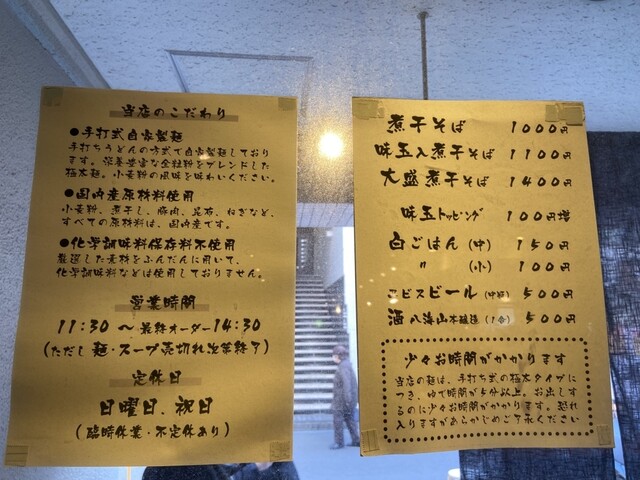 当店のこだわり
●手打式自家製麺
手打ちうどんの方式で自家製麺しており
ます。栄養豊富な全粒粉をブレンドした
極太麺。小麦粉の風味を味わいください。
●国内産原材料使用
小麦粉、煮干し、豚肉、昆布、ねぎなど、
すべての原材料は、国内産です。
●化学調味料保存料不使用
厳選した素材をふんだんに用いて、
化学調味料などは使用しておりません。
営業時間
11:30 ～ 最終オーダー 14:30
(ただし 麺・スープ売切れ次第終了)
定休日
日曜日、祝日
(臨時休業・不定休あり)
煮干そば 1000円
味玉入煮干そば 1100円
大盛煮干そば 1400円
味玉トッピング 100円増
白ごはん (中) 150円
〃 (小) 100円
ヱビスビール (中瓶) 500円
酒 八海山本醸造 (1合) 500円
少々お時間がかかります
当店の麺は、手打ち式の極太タイプに
つき、ゆで時間が5分以上。お出しす
るのに少々お時間がかかります。恐れ
入りますがあらかじめご了承ください